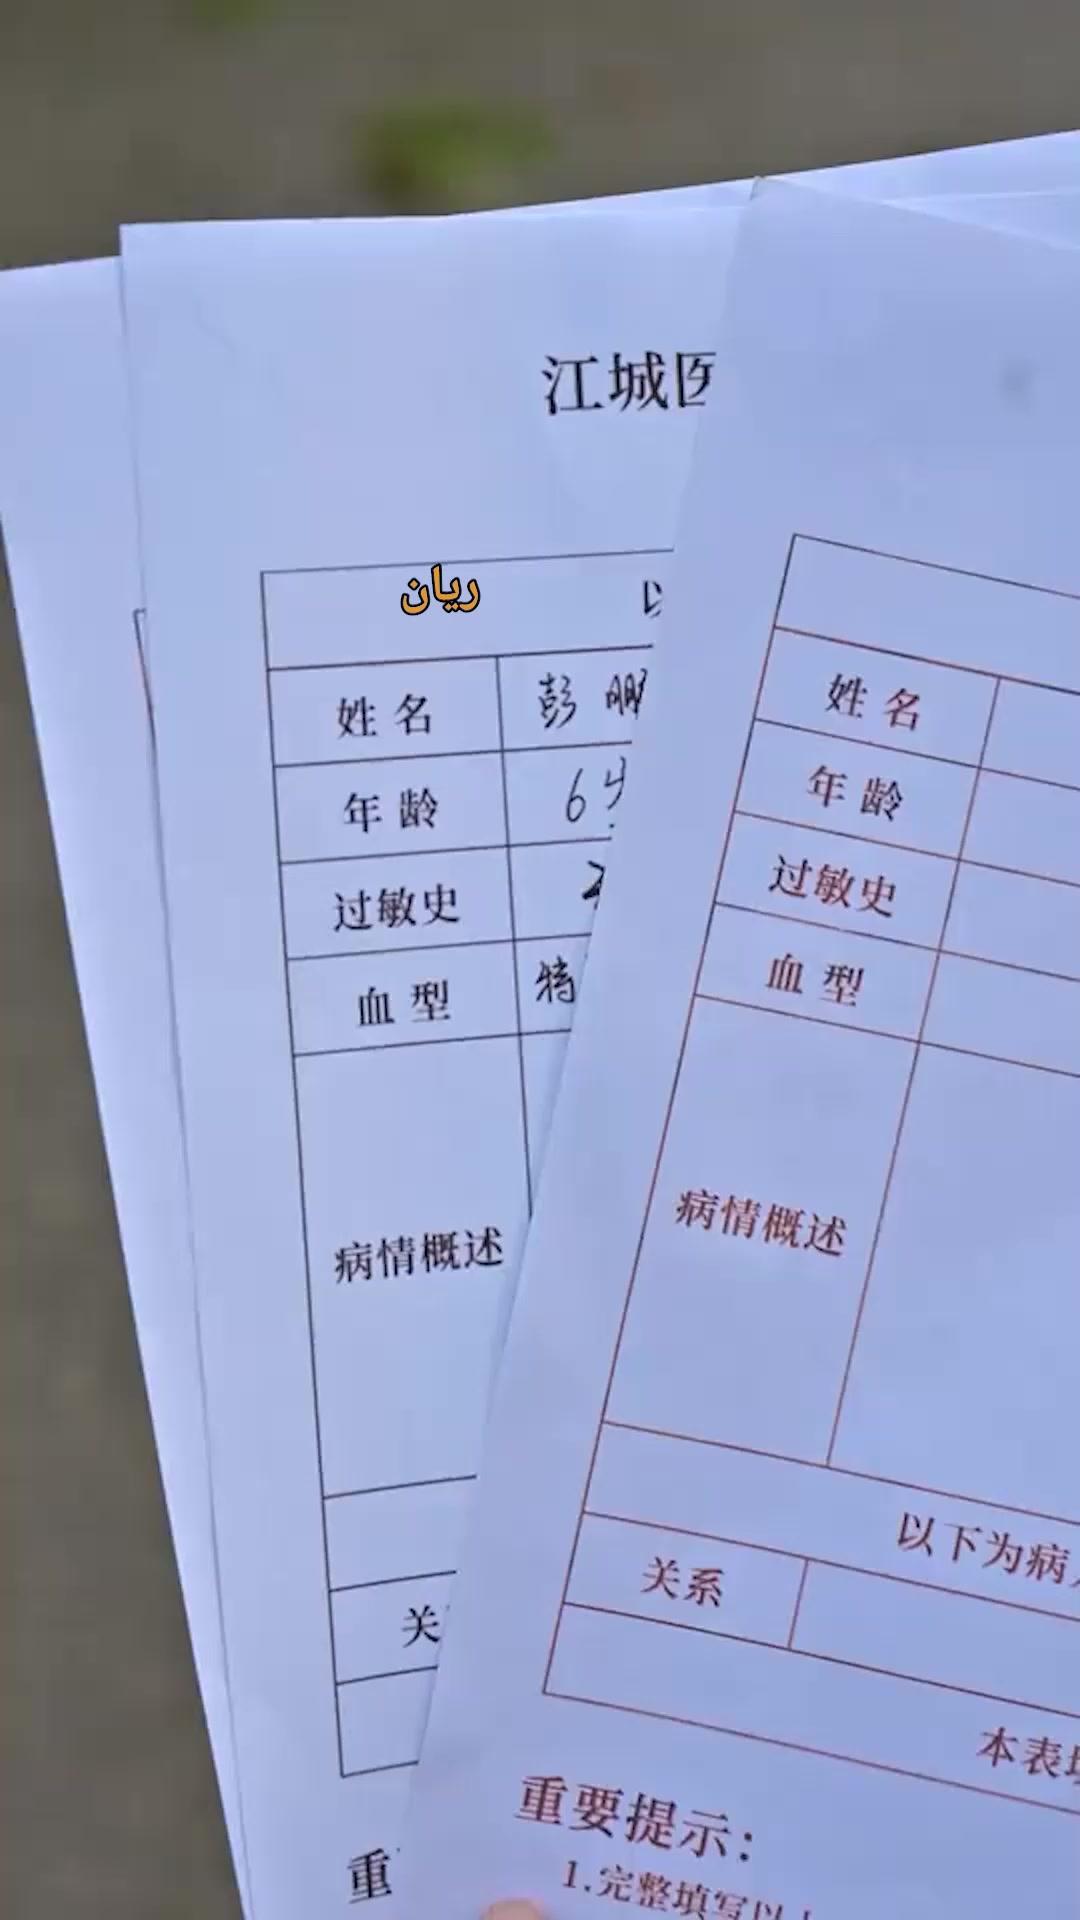 江城医
ريان
以
姓名 彭鹏
年龄 65
过敏史
血型 特
病情概述
关
重
姓名
年龄
过敏史
血型
病情概述
以下为病
关系
本表填
重要提示：
1.完整填写以上